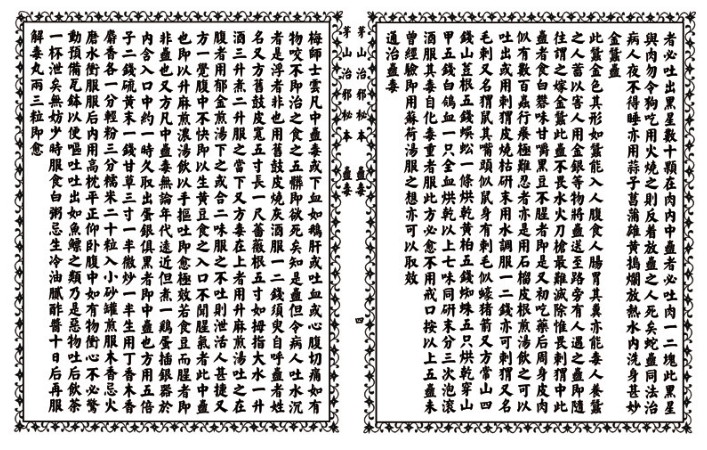 者必吐出黑星數十顆在肉內中蠱者必吐肉一二塊此黑星
與肉勿令狗吃用火燒之則反着放蠱之人死矣蛇蠱同法治
病人夜不得睡亦用蒜子菖蒲雄黃搗爛放熱水內洗身甚妙
金蠶蠱
此蠶金色其形如蠶能入人腹食人腸胃其糞亦能毒人養蠶
之人蓄以害人用金銀等物將蠱送至路旁有人遇之蠱即隨
往謂之嫁金蠶此蠱不畏水火刀槍最難滅除惟畏刺猬中此
蠱者食白礬味甘嚼黑豆不腥者即是又初吃藥后周身皮肉
似有數百蟲行癢極難忍者亦是用石榴皮根煎湯飲之可以
吐出或用刺猬皮燒枯研末用水調服一二錢亦可刺猬又名
毛刺又名猬鼠其嘴頭似鼠身有刺毛似蠔猪箭又方常山四
錢山荳根五錢蜈蚣一條烘乾黃柏五錢蜘蛛五只烘乾穿山
甲五錢白鴿血一只全血烘乾以上七味同研末分三次泡滾
酒服其毒自化毒重者服此方必愈不用戒口按以上五蠱未
曾經驗即用蘇荷湯服之想亦可以取效
通治蠱毒
茅山治邪秘本 蠱毒 四
茅山治邪秘本 蠱毒
梅師士雲凡中蠱毒或下血如鵝肝或吐血或心腹切痛如有
物咬不即治之食之五髒即欲死矣知是蠱但令病人吐水沉
者是浮者非也用舊鼓皮燒灰酒服一二錢須臾自呼蠱者姓
名又方舊鼓皮寬五寸長一尺薔薇根五寸如拇指大水一升
酒三升煮二升服之當下又方毒在上者用升麻煎湯吐之在
腹者用郁金煎湯下之或合二味服之不吐則泄活人甚捷又
方一覺腹中不快即以生黃豆食之入口不聞腥氣者此中蠱
也即以升麻煎濃湯飲以手摳吐即愈極效若食豆而腥者即
非蠱也又方凡中蠱毒無論年代遠近但煮一鷄蛋插銀器於
內含入口中約一時久取出蛋銀俱黑者即中蠱也方用五倍
子二錢硫黃末一錢甘草三寸一半微炒一半生用丁香木香
麝香各一分輕粉三分糯米二十粒入小砂罐煎服木香忌火
磨水衝服服后內用高枕平正仰卧腹中如有物衝心不必驚
動預備瓦缽以便嘔吐吐出如魚鰾之類乃是惡物吐后飲茶
一杯泄矣無妨少時服食白粥忌生冷油膩酢醬十日后再服
解毒丸兩三粒即愈